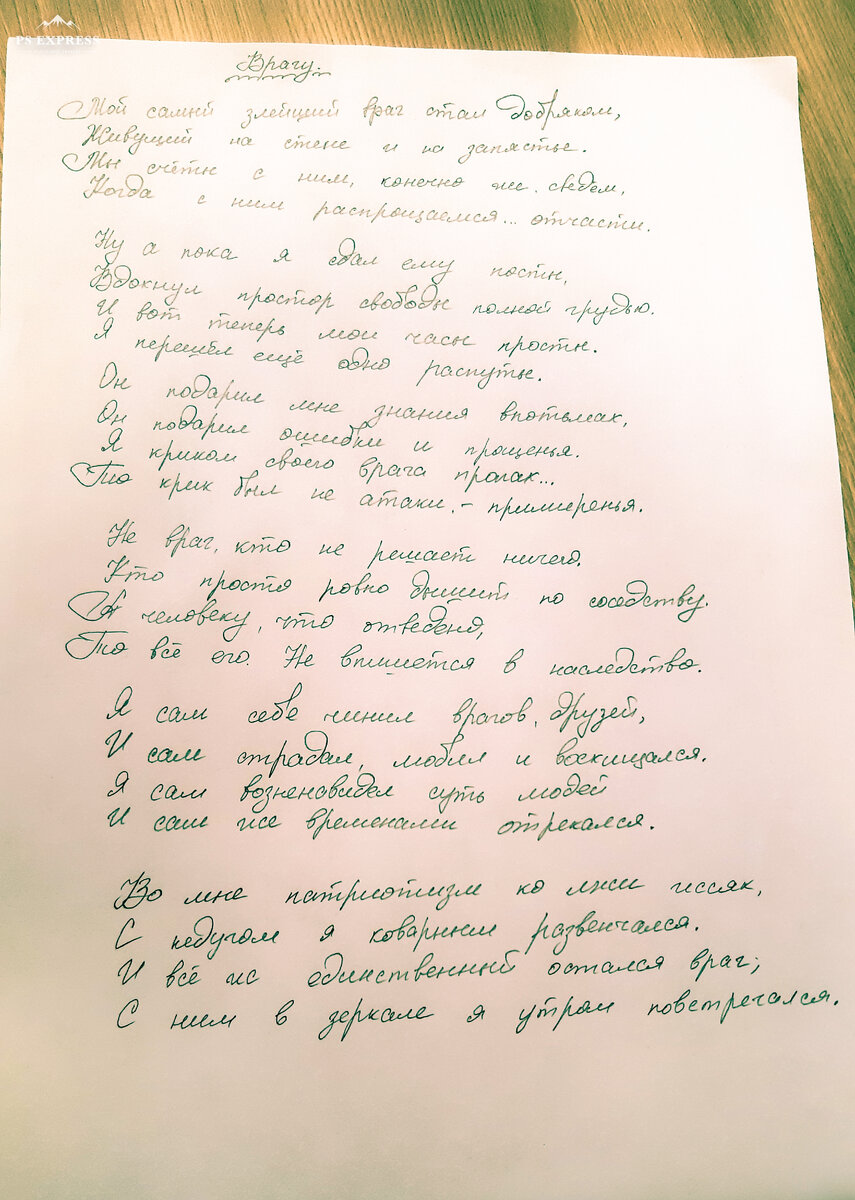 PS EXPRESS
Врагу.
Мой самый злейший враг стал добряком,
Живущий на стене и на запястье.
Мы счёты с ним, конечно же, сведём,
Когда с ним распрощаемся... отчасти.
Ну а пока я сдал ему посты,
Вдохнул простор свободы полной грудью.
И вот теперь мои часы просты.
Я перешёл ещё одно распутье.
Он подарил мне знания впотьмах,
Он подарил ошибки и прощенья.
Я криком своего врага пропах...
То крик был не атаки, - примиренья.
Не враг, кто не решает ничего.
Кто просто ровно дышит по соседству.
А человеку, что отведено,
То всё его. Не впишется в наследство.
Я сам себе чинил врагов, друзей,
И сам страдал, любил и восхищался.
Я сам возненавидел суть людей
И сам же временами отрекался.
Во мне патриотизм ко лжи иссяк,
С недугом я коварным развенчался.
И всё ж единственный остался враг;
С ним в зеркале я утром повстречался.